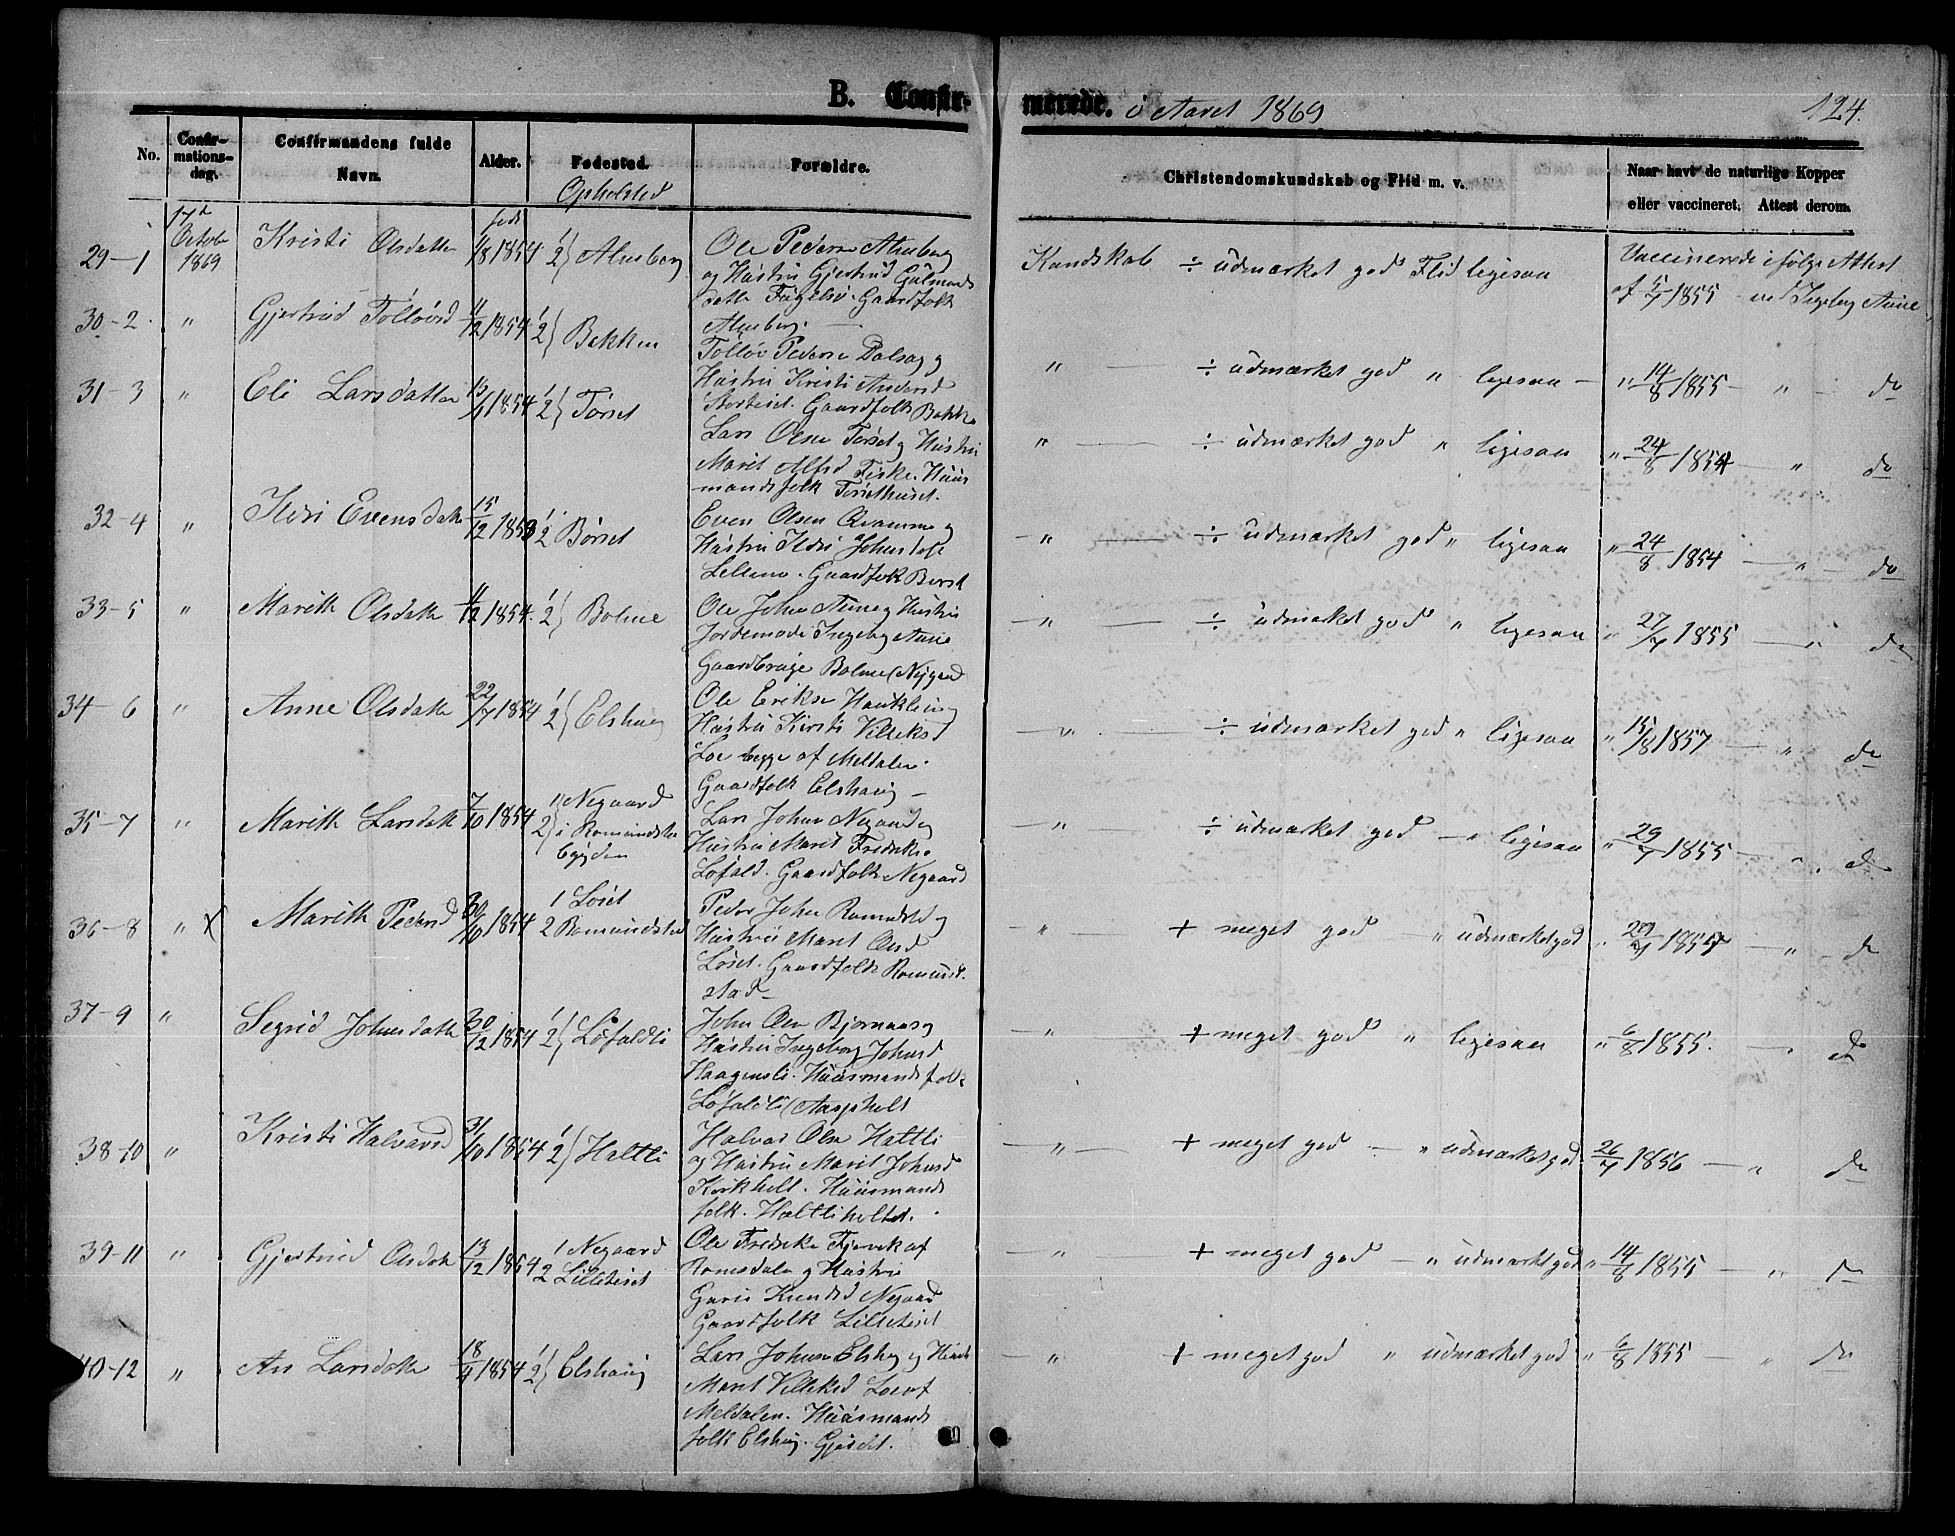 B. Confirmerede. i Aaret 1869
124.
No. Confirmationsdag. Confirmandens fulde Navn. Alder. Fødested. Forældre. Christendomskundskab og Flid m. v. Naar havt de naturlige Kopper eller vaccineret. Attest derom.
Opholsted
født
29-1 17de Octobr 1869 Kristi Olsdatter 4/8 1854. 1 2} Almberg
Ole Peders Almberg
og Hustru Gjertrud Gulmunds
datter Fugelsø. Gaardfolk
Almberg.
Kundskab ÷ udmærket god Flid ligesaa
Vaccinerede ifølge Attest
af 5/7 1855 ved Ingebg Aune
30-2. " Gjertrud Tolløvsd 11/12 1854 1 2} Bakken
Tolløv Peders Dalsag og
Hustru Kristi Andersd
Storteiset. Gaardfolk Bakke
" ÷ udmærket god " ligesaa - " 14/8 1855 - " - do
31-3 " Eli Larsdatter 13/9 1854 1 2} Tørset
Lars Olsen Tørset og Hustru
Marit Alfsd Fiske. Huus
mandsfolk Tørsethuset.
" ÷ udmærket god " ligesaa " 24/8 1854 - " do
32-4 " Ildri Evensdatt 15/12 1853 1 2 Børset
Even Olsen Qvamme og
Hustru Ildri Johnsdatt
Lillemo. Gaardfolk Børset
" ÷ udmærket god " ligesaa " 24/8 1854 - " - do
33-5 " Marith Olsdatte 11/12 1854. 1 2} Bolme
Ole Johns Aune og Hustru
Jordemode Ingebg Aune
Gaardbruge Bolme (Nygaard
" ÷ udmærket god " ligesaa " 27/7 1855 - " do
34-6 " Anne Olsdatte 22/7 1854 1 2} Elshaug
Ole Erikse Haukli og
Hustru Kirsti Villeksd
Loe begge af Meldalen.
Gaardfolk Elshaug -
" ÷ udmærket god " ligesaa " 15/8 1857 - " do
35-7 " Marith Larsdatt 7/10 1854 1 2} Negaard i Romundstabygden
Lars Johns Negaard og
Hustru Marit Fredriks
Løfald. Gaardfolk Negaard
" ÷ udmærket god - " ligesaa " 29/7 1855 - " do
36-8 " X Marith Pedersd 30/10 1854 1 Løset 2 Romundstad
Peder Johns Romundstd og
Hustru Marit Olsd
Løset. Gaardfolk Romund
stad -
" + meget god - " udmærket god " 29/7 1857 - " - do
37-9 " Segrid Johnsdatte 30/12 1854 1 2} Løfaldli
John Olsen Bjørnaas og
Hustru Ingeborg Johnsd
Haagensli. Huusmandsfolk
Løfaldli (Aaspholt
" + meget god " ligesaa " 6/8 1855. - " do
38-10 " Kristi Halvarsd 31/10 1854 1 2} Haltli
Halvar Olse Haltli
og Hustru Marit Johnsd
Kirkholt. Huusmands
folk. Haltliholtet.
" + meget god - " udmærket god 26/7 1856 - " do
39-11 " Gjertrud Olsdatte 13/12 1854 1 Negaard 2 Lilleteiset
Ole Fredrikse af
Romsdalen og Hustru
Guru Knudsd Negaard
Gaardfolk Lilleteiset
" + meget god - " udmærket god " 14/8 1855 - " do
40-12 " An Larsdatte 18/4 1854 1 2} Elshaug
Lars Johnse Elshg og Hustru
Marit Villeksd Loe af
Meldalen. Huusmands
folk Elshaug. Gjerdet.
" + meget god " udmærket god " 6/8 1855 - " do